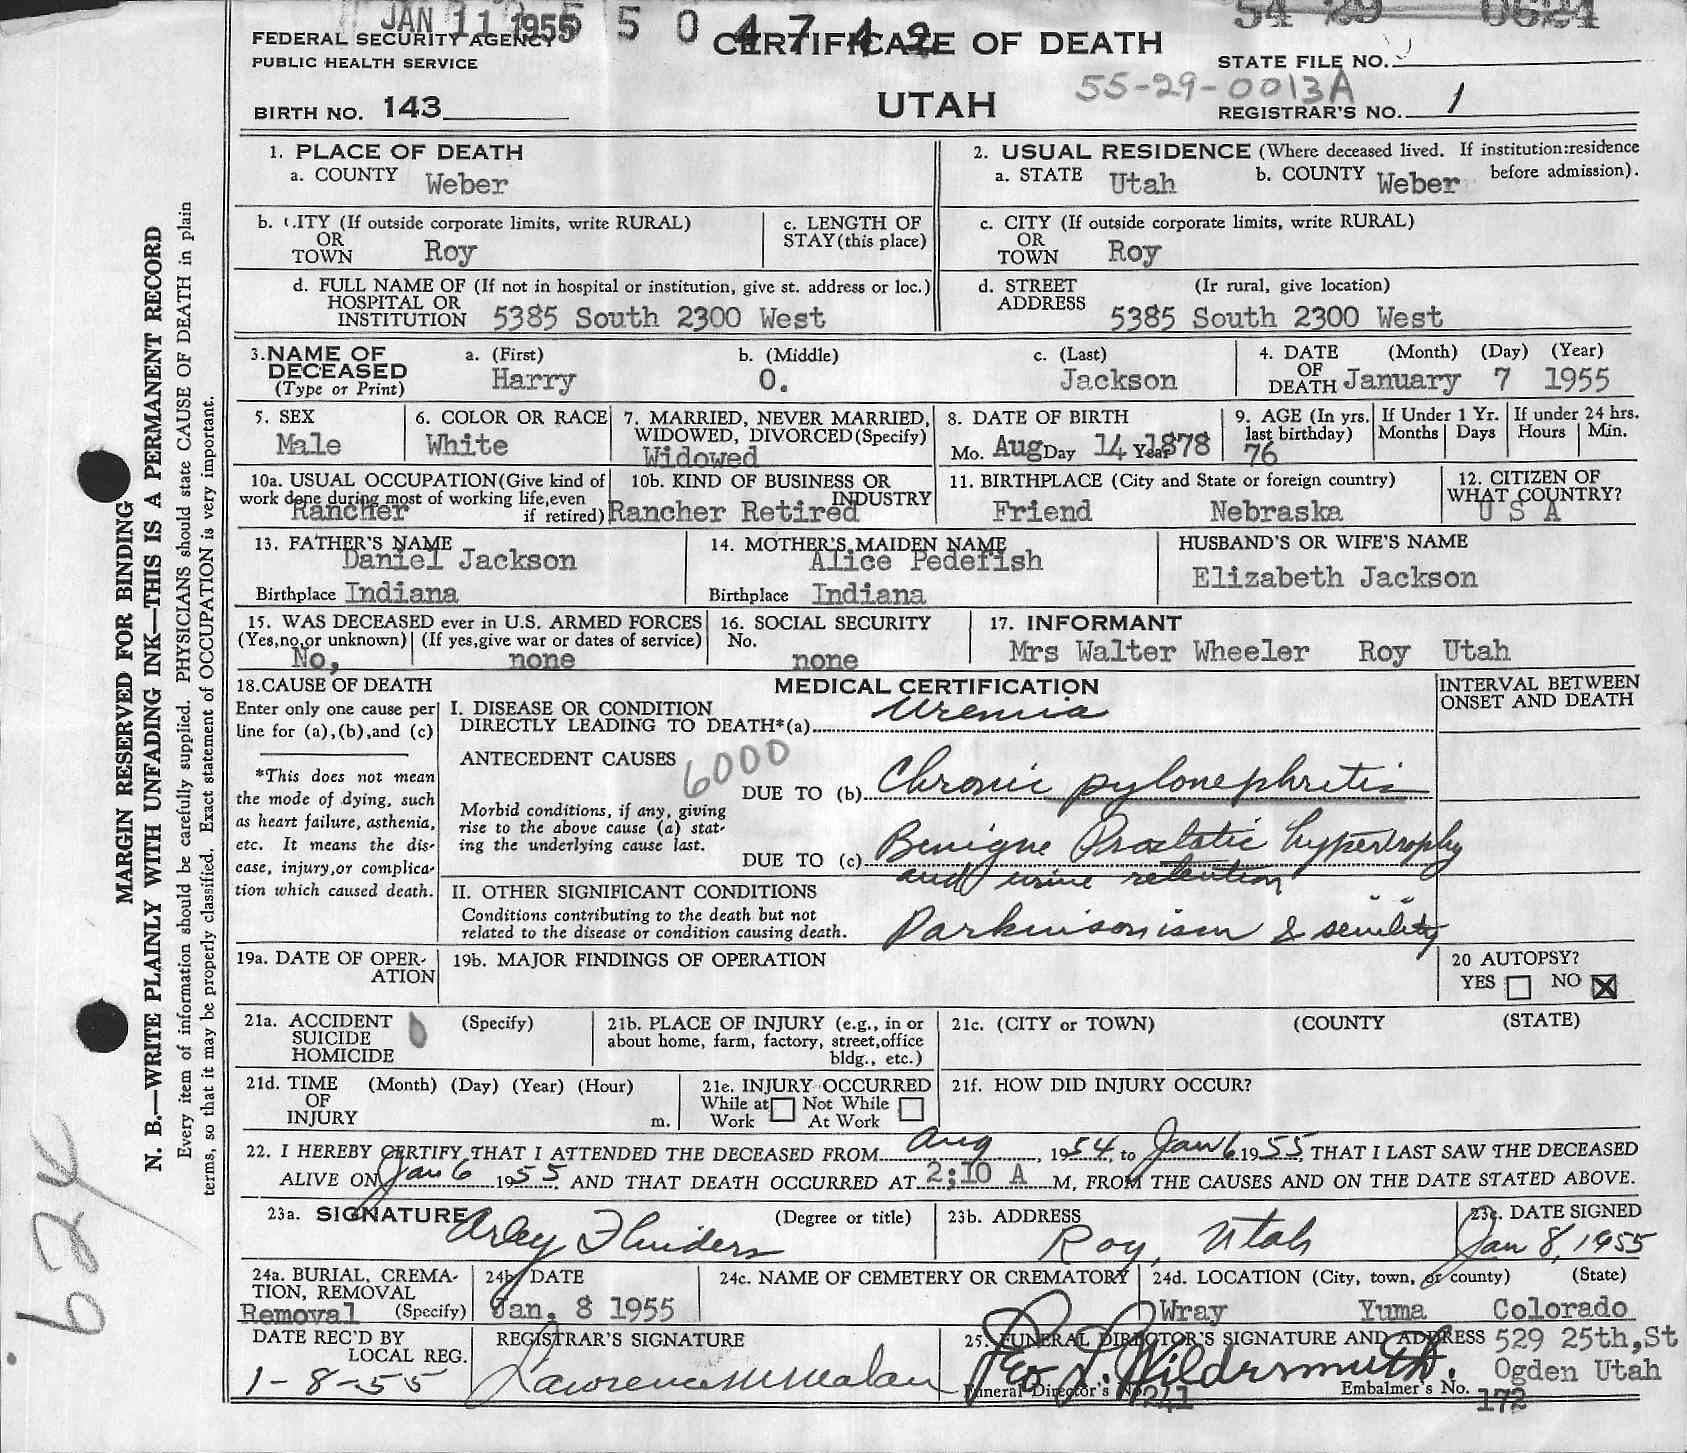 JAN 11 1955 5 5 0 4 7 4 2
54 29 0621
FEDERAL SECURITY AGENCY
PUBLIC HEALTH SERVICE
CERTIFICATE OF DEATH
STATE FILE NO.
55-29-0013A
BIRTH NO. 143
UTAH
REGISTRAR'S NO. 1
1. PLACE OF DEATH
a. COUNTY Weber
2. USUAL RESIDENCE (Where deceased lived. If institution:residence before admission).
a. STATE Utah b. COUNTY Weber
b. CITY (If outside corporate limits, write RURAL)
OR
TOWN Roy
c. LENGTH OF
STAY(this place)
c. CITY (If outside corporate limits, write RURAL)
OR
TOWN Roy
d. FULL NAME OF (If not in hospital or institution, give st. address or loc.)
HOSPITAL OR
INSTITUTION 5385 South 2300 West
d. STREET (Ir rural, give location)
ADDRESS
5385 South 2300 West
3. NAME OF
DECEASED
(Type or Print)
a. (First) b. (Middle) c. (Last)
Harry O. Jackson
4. DATE (Month) (Day) (Year)
OF
DEATH January 7 1955
5. SEX
Male
6. COLOR OR RACE
White
7. MARRIED, NEVER MARRIED,
WIDOWED, DIVORCED(Specify)
Widowed
8. DATE OF BIRTH
Mo. Aug Day 14 Year 1878
9. AGE (In yrs.
last birthday)
76
If Under 1 Yr.
Months Days
If under 24 hrs.
Hours Min.
10a. USUAL OCCUPATION(Give kind of
work done during most of working life,even
if retired)
Rancher
10b. KIND OF BUSINESS OR
INDUSTRY
Rancher Retired
11. BIRTHPLACE (City and State or foreign country)
Friend Nebraska
12. CITIZEN OF
WHAT COUNTRY?
U S A
13. FATHER'S NAME
Daniel Jackson
Birthplace Indiana
14. MOTHER'S MAIDEN NAME
Alice Pedefish
Birthplace Indiana
HUSBAND'S OR WIFE'S NAME
Elizabeth Jackson
15. WAS DECEASED ever in U.S. ARMED FORCES
(Yes,no,or unknown) (If yes,give war or dates of service)
No, none
16. SOCIAL SECURITY
No.
none
17. INFORMANT
Mrs Walter Wheeler Roy Utah
18. CAUSE OF DEATH
Enter only one cause per
line for (a),(b),and (c)
*This does not mean
the mode of dying, such
as heart failure, asthenia,
etc. It means the dis-
ease, injury,or complica-
tion which caused death.
MEDICAL CERTIFICATION
INTERVAL BETWEEN
ONSET AND DEATH
I. DISEASE OR CONDITION
DIRECTLY LEADING TO DEATH*(a) Uremia
ANTECEDENT CAUSES
6000
DUE TO (b) Chronic pylonephretis
Morbid conditions, if any, giving
rise to the above cause (a) stat-
ing the underlying cause last.
DUE TO (c) Benigne Prostatic hypertrophy
and urine retention
II. OTHER SIGNIFICANT CONDITIONS
Conditions contributing to the death but not
related to the disease or condition causing death.
Parkinsonism & senility
19a. DATE OF OPER-
ATION
19b. MAJOR FINDINGS OF OPERATION
20 AUTOPSY?
YES NO X
21a. ACCIDENT (Specify)
SUICIDE
HOMICIDE
21b. PLACE OF INJURY (e.g., in or
about home, farm, factory, street,office
bldg., etc.)
21c. (CITY or TOWN) (COUNTY (STATE)
21d. TIME (Month) (Day) (Year) (Hour)
OF
INJURY m.
21e. INJURY OCCURRED
While at Not While
Work At Work
21f. HOW DID INJURY OCCUR?
22. I HEREBY CERTIFY THAT I ATTENDED THE DECEASED FROM Aug, 1954, to Jan 6 1955, THAT I LAST SAW THE DECEASED
ALIVE ON Jan 6 1955 AND THAT DEATH OCCURRED AT 2:10 A M, FROM THE CAUSES AND ON THE DATE STATED ABOVE.
23a. SIGNATURE (Degree or title)
Arley Flinders
23b. ADDRESS
Roy, Utah
23c. DATE SIGNED
Jan 8, 1955
24a. BURIAL, CREMA-
TION, REMOVAL
Removal (Specify)
24b. DATE
Jan. 8 1955
24c. NAME OF CEMETERY OR CREMATORY
24d. LOCATION (City, town, or county) (State)
Wray Yuma Colorado
DATE REC'D BY
LOCAL REG.
1-8-55
REGISTRAR'S SIGNATURE
Lawrence M Malan
25. FUNERAL DIRECTOR'S SIGNATURE AND ADDRESS 529 25th,St
Geo L. Wildersmuth. Ogden Utah
Funeral Director's No. 241 Embalmer's No. 172
MARGIN RESERVED FOR BINDING
N. B.—WRITE PLAINLY WITH UNFADING INK—THIS IS A PERMANENT RECORD
Every item of information should be carefully supplied. PHYSICIANS should state CAUSE OF DEATH in plain
terms, so that it may be properly classified. Exact statement of OCCUPATION is very important.
624